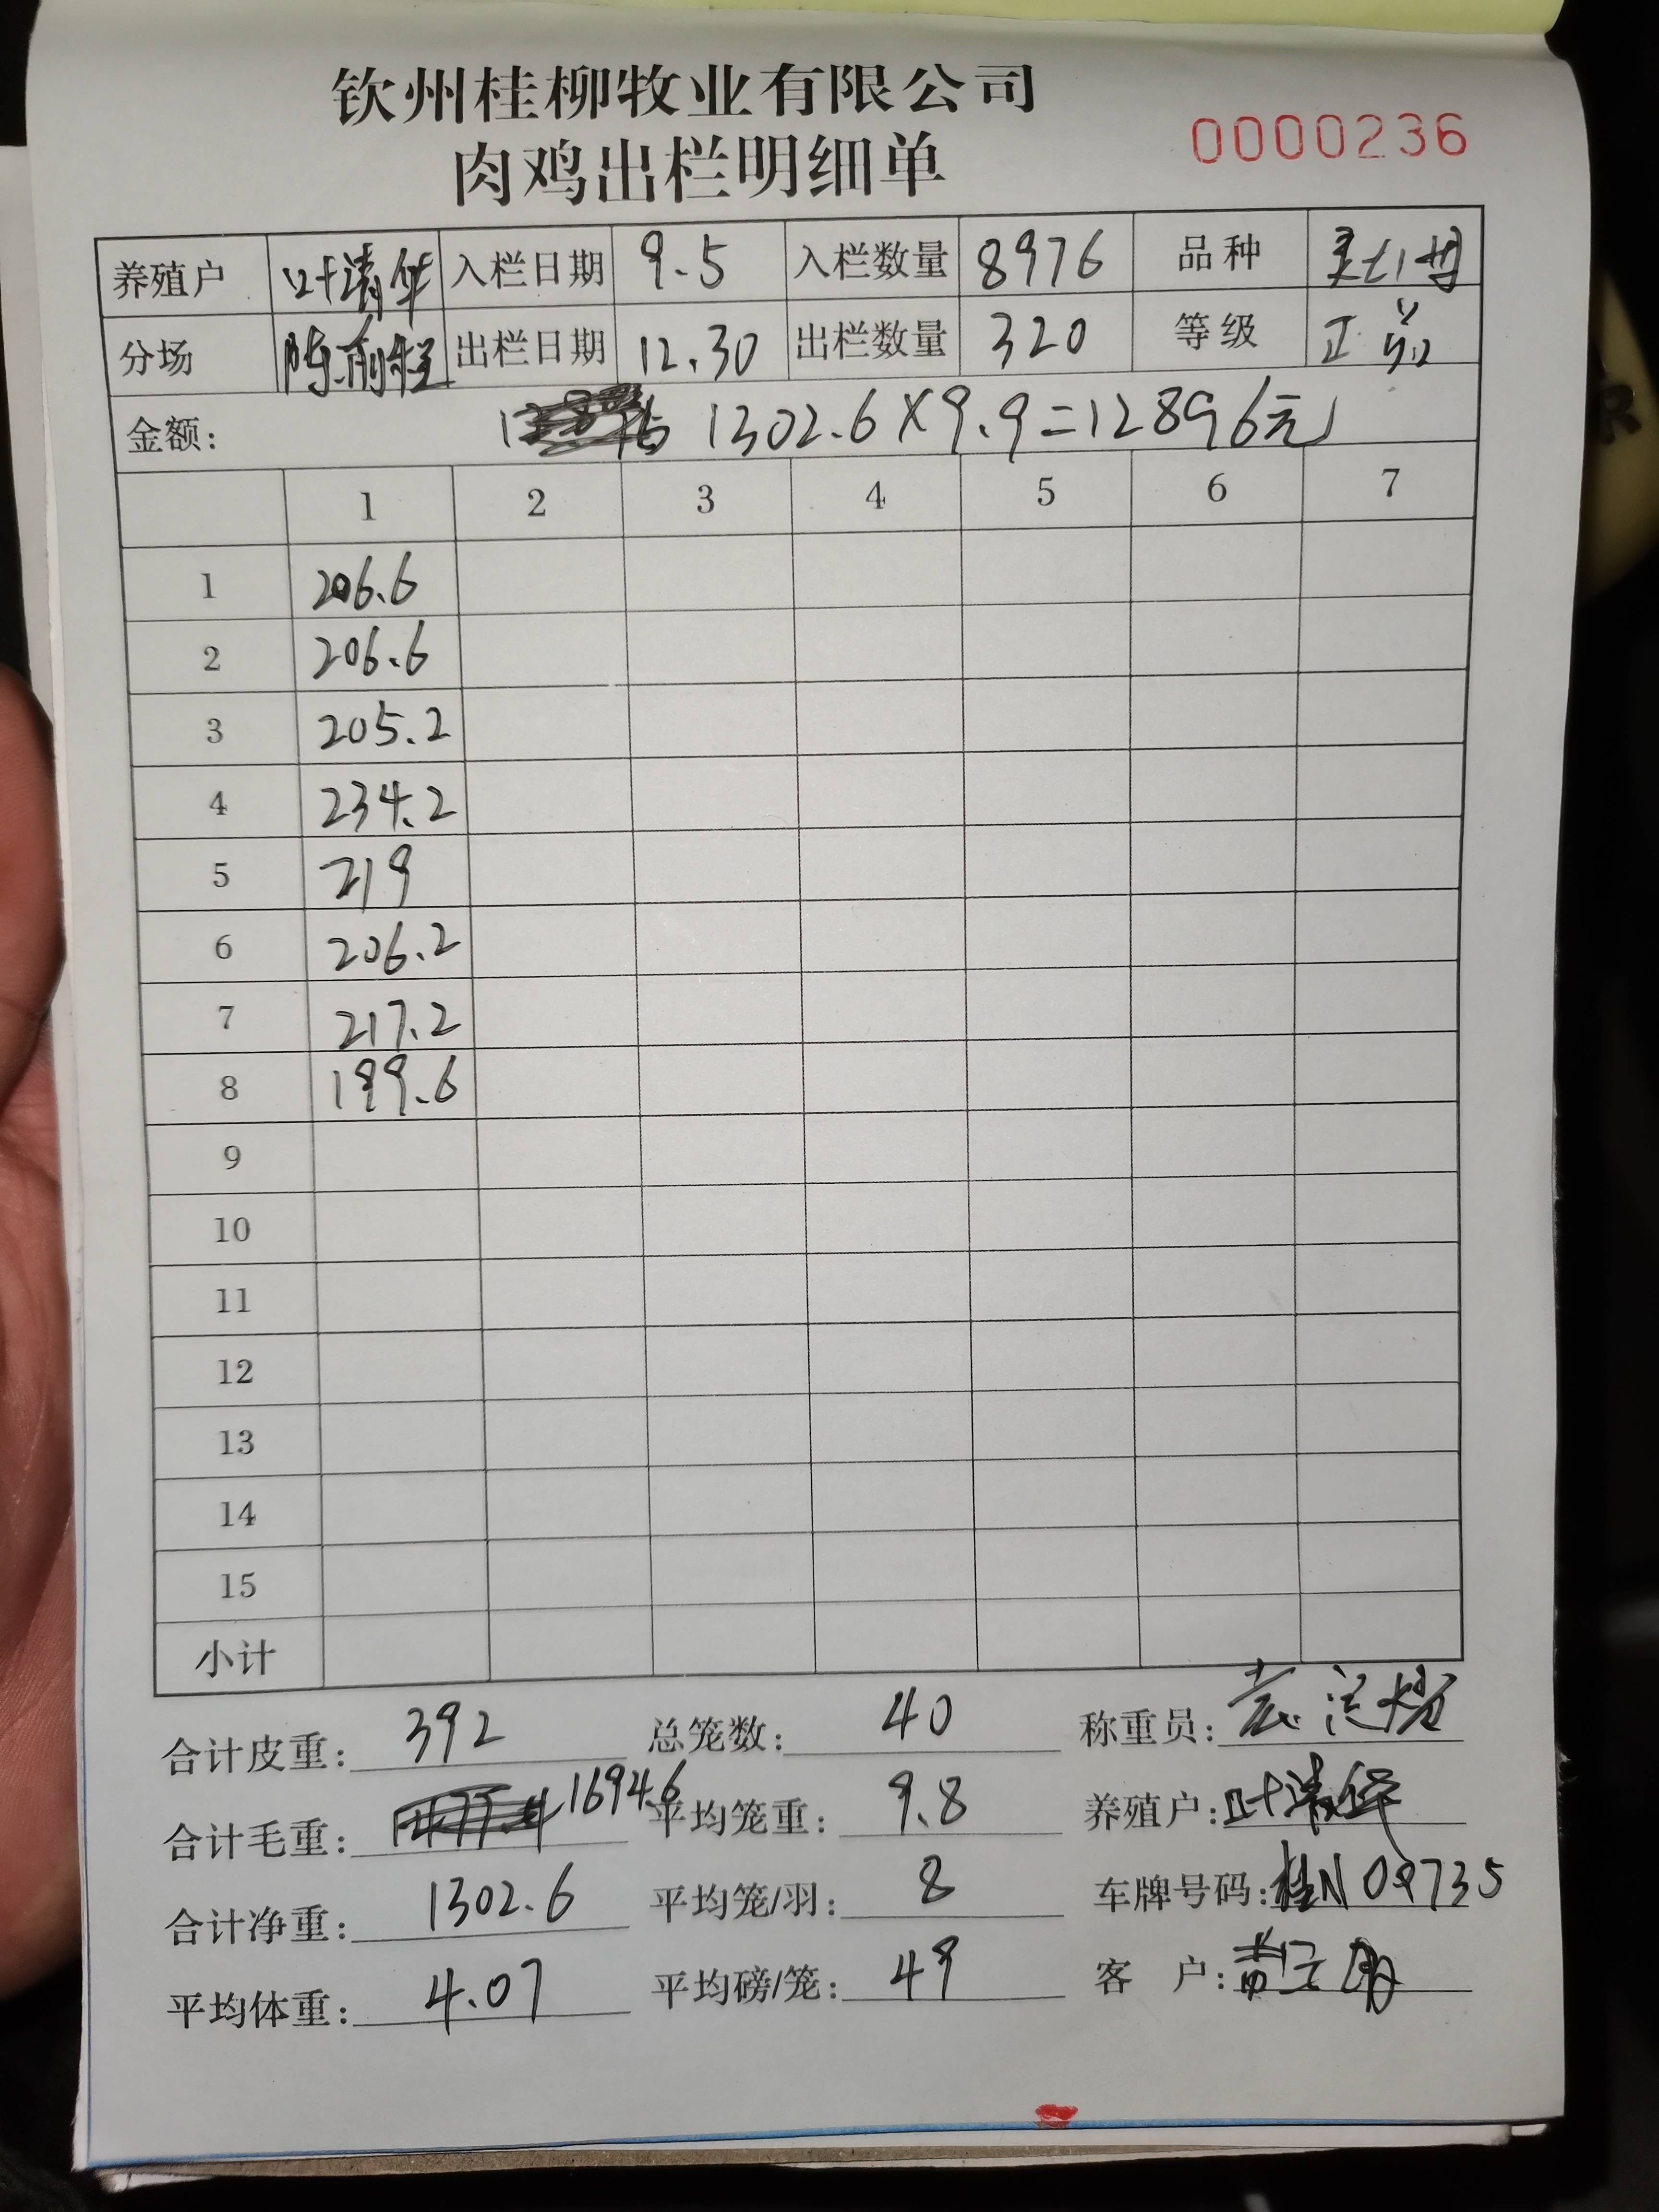 钦州桂柳牧业有限公司
肉鸡出栏明细单
0000236
养殖户 叶清华 入栏日期 9.5 入栏数量 8976 品种
分场 陈前程 出栏日期 12.30 出栏数量 320 等级 正品
金额: 1302.6×9.9=12896元
1 2 3 4 5 6 7
1 206.6
2 206.6
3 205.2
4 234.2
5 219
6 206.2
7 217.2
8 199.6
9
10
11
12
13
14
15
小计
合计皮重: 392 总笼数: 40 称重员:
合计毛重: 1694.6 平均笼重: 9.8 养殖户: 叶清华
合计净重: 1302.6 平均笼/羽: 8 车牌号码: 桂N09735
平均体重: 4.07 平均磅/笼: 49 客 户: